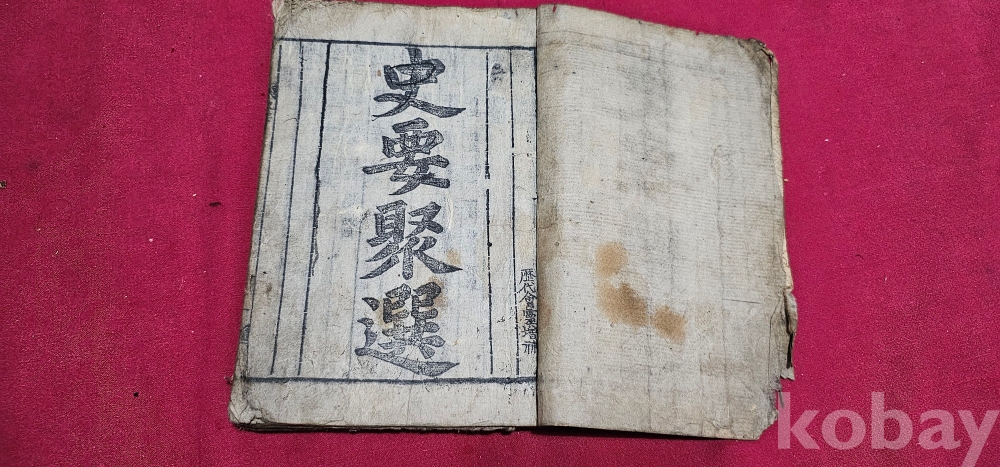 史要聚選
歷代會靈增補
kobay